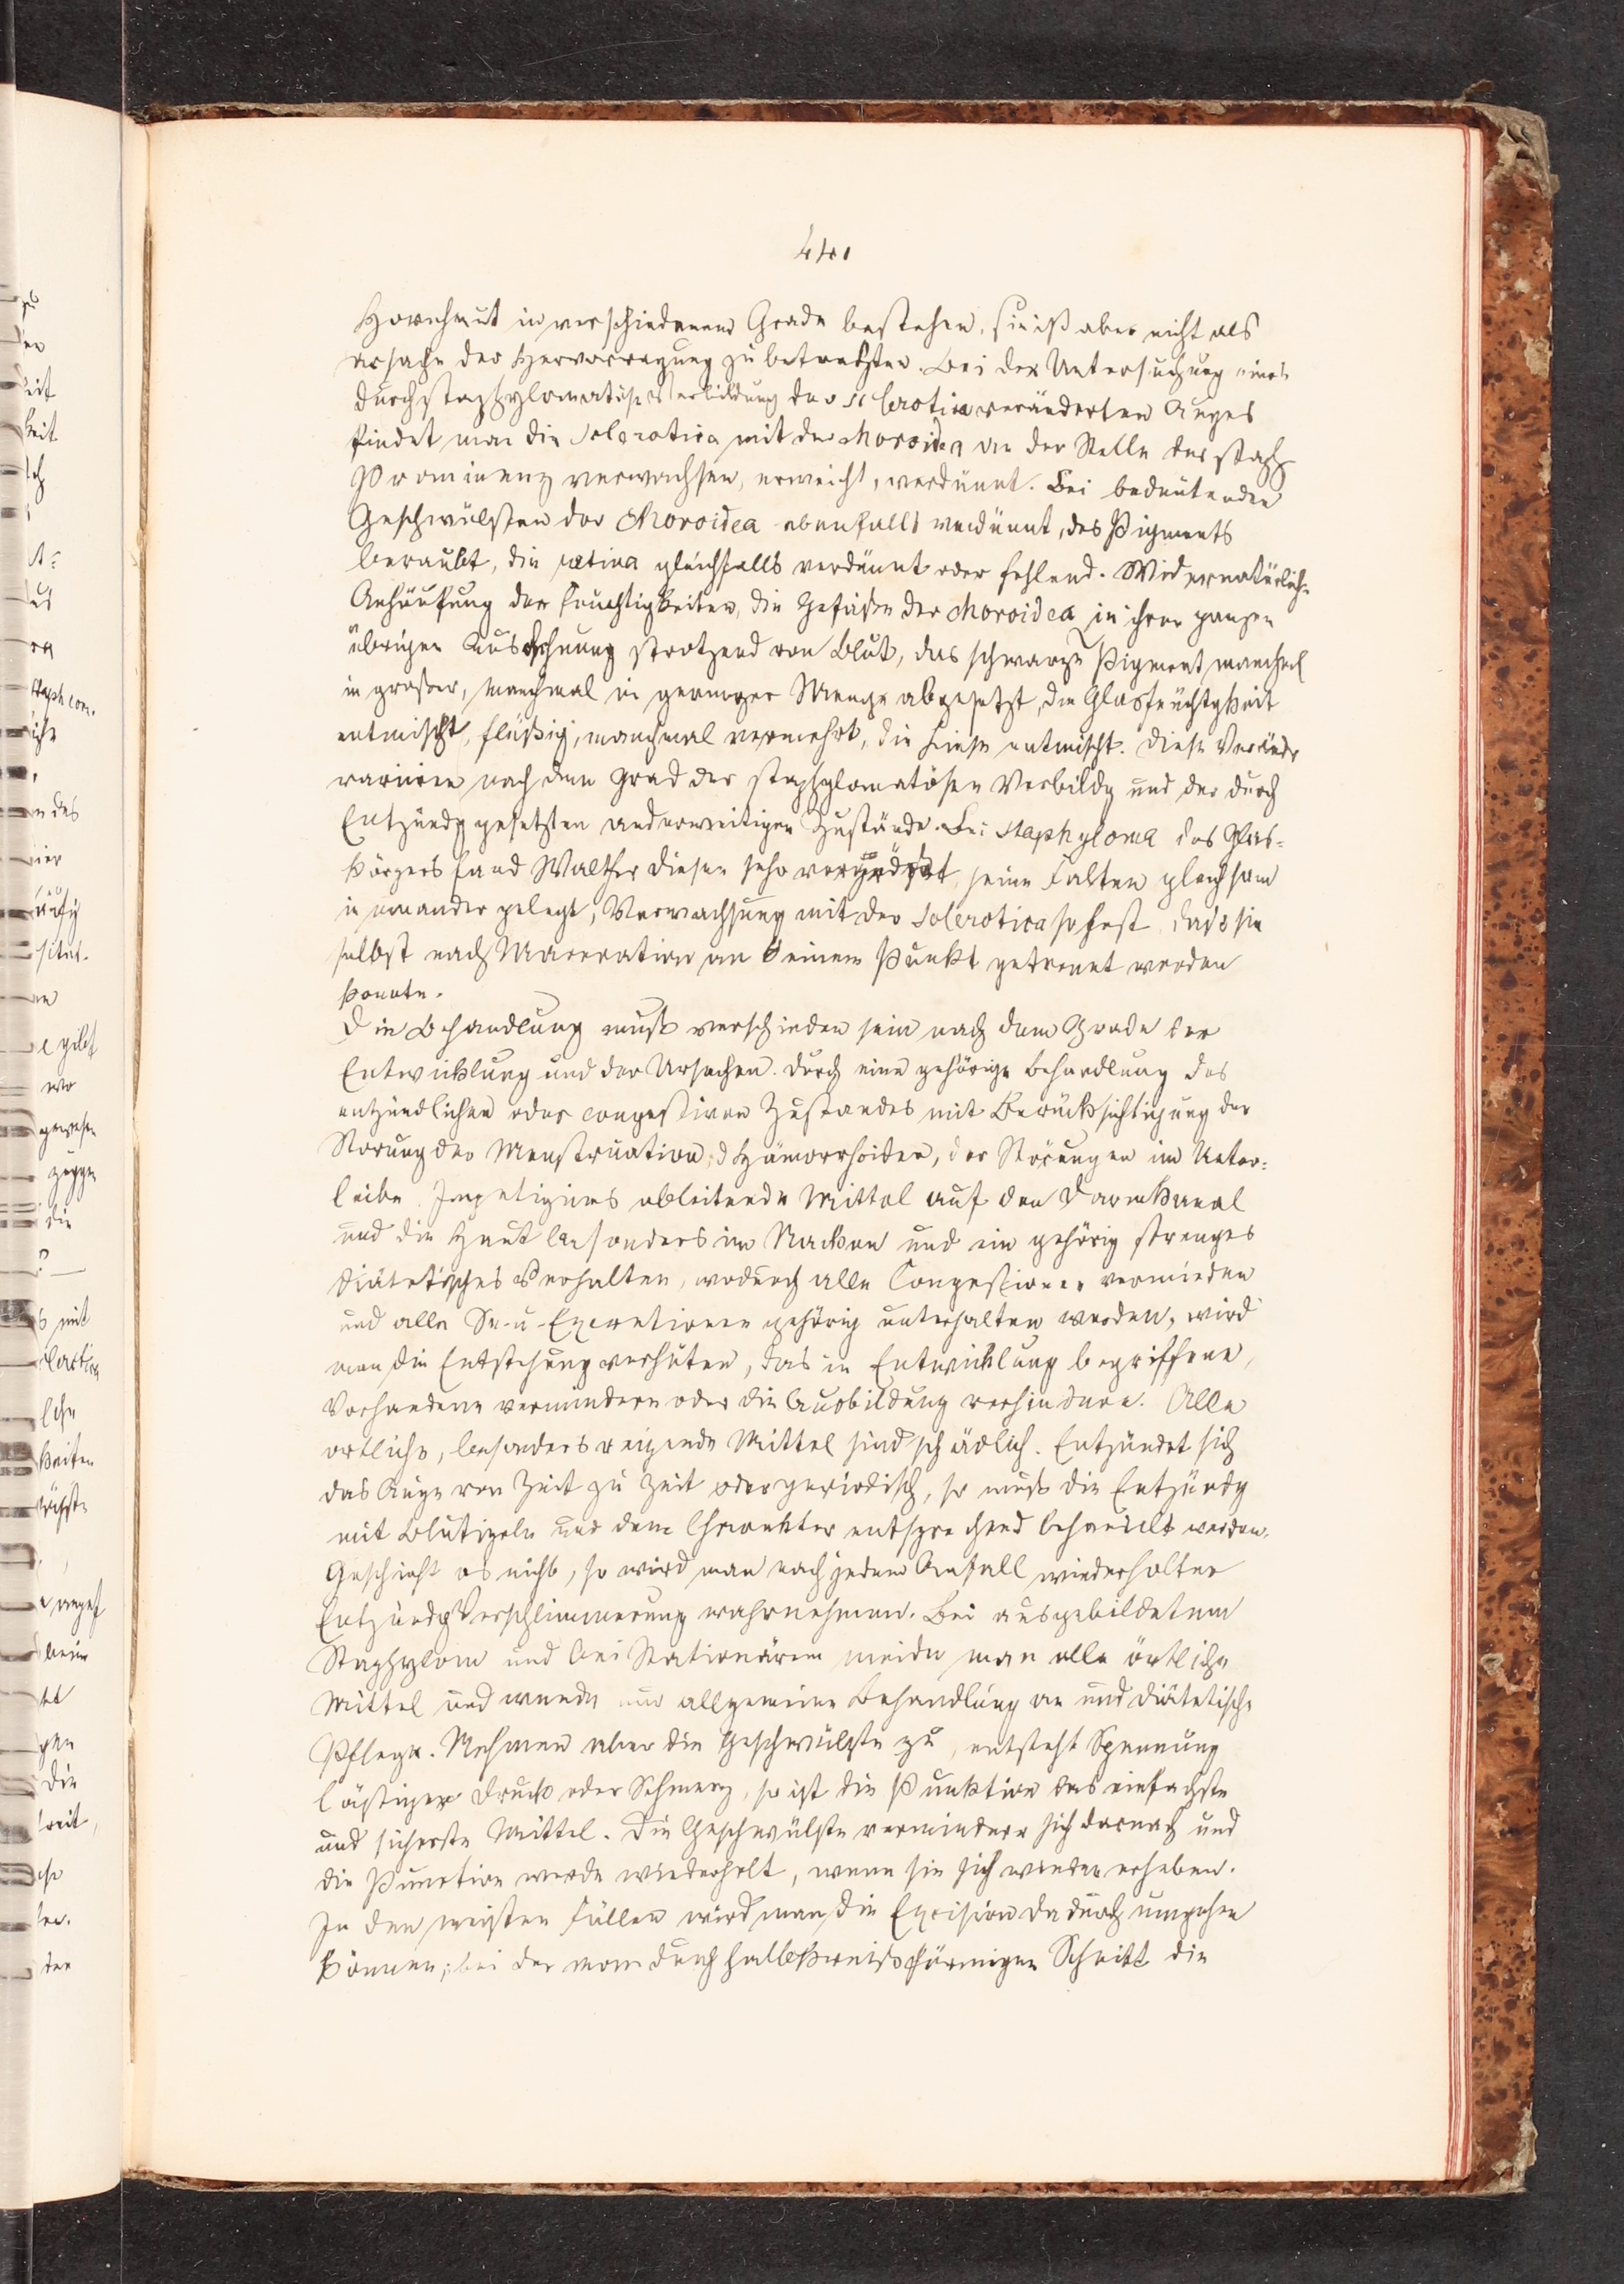 441
Hornhaut in verschiedenem Grade bestehen, sie ist aber nicht als
Ursache der Hervorragung zu betrachten. Bei der Untersuchung eines
durch staphylomatöse Verbildung der Sclerotica veränderten Auges
findet man die Sclerotica mit der Choroidea an der Stelle der staph
Prominenz verwachsen, erweicht, verdünnt. Bei bedeutenden
Geschwülsten der Choroidea ebenfalls verdünnt, des Pigments
beraubt, die retina gleichfalls verdünnt oder fehlend. Widernatürliche
Anhäufung der Feuchtigkeiten, die Gefäße der Choroidea in ihrer ganzen
übrigen Ausdehnung strotzend von Blut, das schwarze Pigment manchmal
in großer, manchmal in geringer Menge abgesetzt, die Glasfeuchtigkeit
entmischt, flüßig, manchmal vermehrt, die Linse entmischt. Diese Veränd
variiren nach dem Grad der staphylomatösen Verbildg und der durch
Entzündg gesetzten anderweitigen Zustände. Bei Staphyloma des Glas-
körpers fand Walther diesen sehr seine Falten gleichsam
in einander gelegt, Verwachsung mit der Sclerotica so fest, daß sie
selbst nach Maceration an keinem Punkt getrennt werden
konnte.
Die Behandlung muß verschieden sein nach dem Grade der
Entwicklung und der Ursachen. Durch eine gehörige Behandlung des
entzündlichen oder congestiven Zustandes mit Berücksichtigung der
Störung der Menstruation, d Hämorrhoiden, der Störungen im Unter-
leibe, Impetigines ableitende Mittel auf den Darmkanal
und die Haut besonders im Nacken und ein gehörig strenges
diätetisches Verhalten, wodurch alle Congestionen vermieden
und alle Se- u- Excretionen gehörig unterhalten werden, wird
man die Entstehung verhüten, das in Entwicklung begriffene,
Vorhandene vermindern oder die Ausbildung verhindern. Alle
örtliche, besonders reizende Mittel sind schädlich. Entzündet sich
das Auge von Zeit zu Zeit oder periodisch, so muß die Entzündg
mit Blutigeln und dem Charakter entsprechend behandelt werden.
Geschieht es nicht, so wird man nach jedem Anfall wiederholter
Entzündg Verschlimmerung wahrnehmen. Bei ausgebildetem
Staphylom und bei Stationärem meide man alle örtliche
Mittel und wende nur allgemeine Behandlung an und diätetische
Pflege. Nehmen aber die Geschwülste zu, entsteht Spannung
lästiger Druck oder Schmerz, so ist die Punktion das einfachste
und sicherste Mittel. Die Geschwülste vermindern sich darnach und
die Punction werde wiederholt, wenn sie sich wieder erheben.
In den meisten Fällen wird man die Excision dadurch umgehen
können, bei der man durch halbkreisförmigen Schnitt die